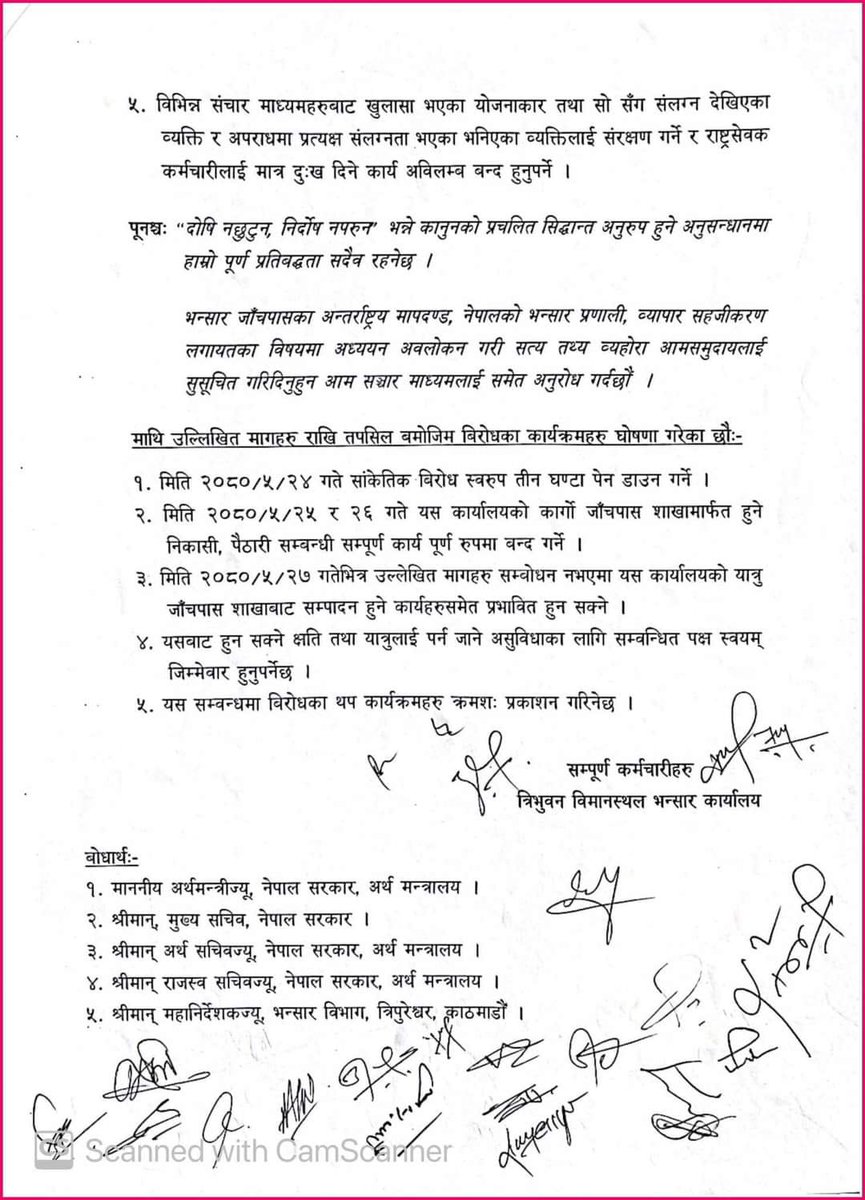 ५. विभिन्न संचार माध्यमहरुबाट खुलासा भएका योजनाकार तथा सो सँग संलग्न देखिएका
व्यक्ति र अपराधमा प्रत्यक्ष संलग्नता भएका भनिएका व्यक्तिलाई संरक्षण गर्ने र राष्ट्रसेवक
कर्मचारीलाई मात्र दुःख दिने कार्य अविलम्ब बन्द हुनुपर्ने ।
पूनश्चः "दोषि नछुटुन, निर्दोष नपरुन" भन्ने कानुनको प्रचलित सिद्धान्त अनुरुप हुने अनुसन्धानमा
हाम्रो पूर्ण प्रतिवद्धता सदैव रहनेछ ।
भन्सार जाँचपासका अन्तर्राष्ट्रय मापदण्ड, नेपालको भन्सार प्रणाली, व्यापार सहजीकरण
लगायतका विषयमा अध्ययन अवलोकन गरी सत्य तथ्य व्यहोरा आमसमुदायलाई
सुसूचित गरिदिनुहुन आम सञ्चार माध्यमलाई समेत अनुरोध गर्दछौं ।
माथि उल्लिखित मागहरु राखि तपसिल बमोजिम बिरोधका कार्यक्रमहरु घोषणा गरेका छौः-
१. मिति २०८०/५/२४ गते सांकेतिक बिरोध स्वरुप तीन घण्टा पेन डाउन गर्ने ।
२. मिति २०८०/५/२५ र २६ गते यस कार्यालयको कार्गो जाँचपास शाखामार्फत हुने
निकासी, पैठारी सम्बन्धी सम्पूर्ण कार्य पूर्ण रुपमा बन्द गर्ने ।
३. मिति २०८०/५/२७ गतेभित्र उल्लेखित मागहरु सम्वोधन नभएमा यस कार्यालयको यात्रु
जाँचपास शाखाबाट सम्पादन हुने कार्यहरुसमेत प्रभावित हुन सक्ने ।
४. यसबाट हुन सक्ने क्षति तथा यात्रुलाई पर्न जाने असुविधाका लागि सम्वन्धित पक्ष स्वयम्
जिम्मेवार हुनुपर्नेछ ।
५. यस सम्वन्धमा बिरोधका थप कार्यक्रमहरु क्रमशः प्रकाशन गरिनेछ ।
सम्पूर्ण कर्मचारीहरु
त्रिभुवन विमानस्थल भन्सार कार्यालय
बोधार्थः-
१. माननीय अर्थमन्त्रीज्यू, नेपाल सरकार, अर्थ मन्त्रालय ।
२. श्रीमान्, मुख्य सचिव, नेपाल सरकार ।
३. श्रीमान् अर्थ सचिवज्यू, नेपाल सरकार, अर्थ मन्त्रालय ।
४. श्रीमान् राजस्व सचिवज्यू, नेपाल सरकार, अर्थ मन्त्रालय ।
५. श्रीमान् महानिर्देशकज्यू, भन्सार विभाग, त्रिपुरेश्वर, काठमाडौं ।
CS Scanned with CamScanner